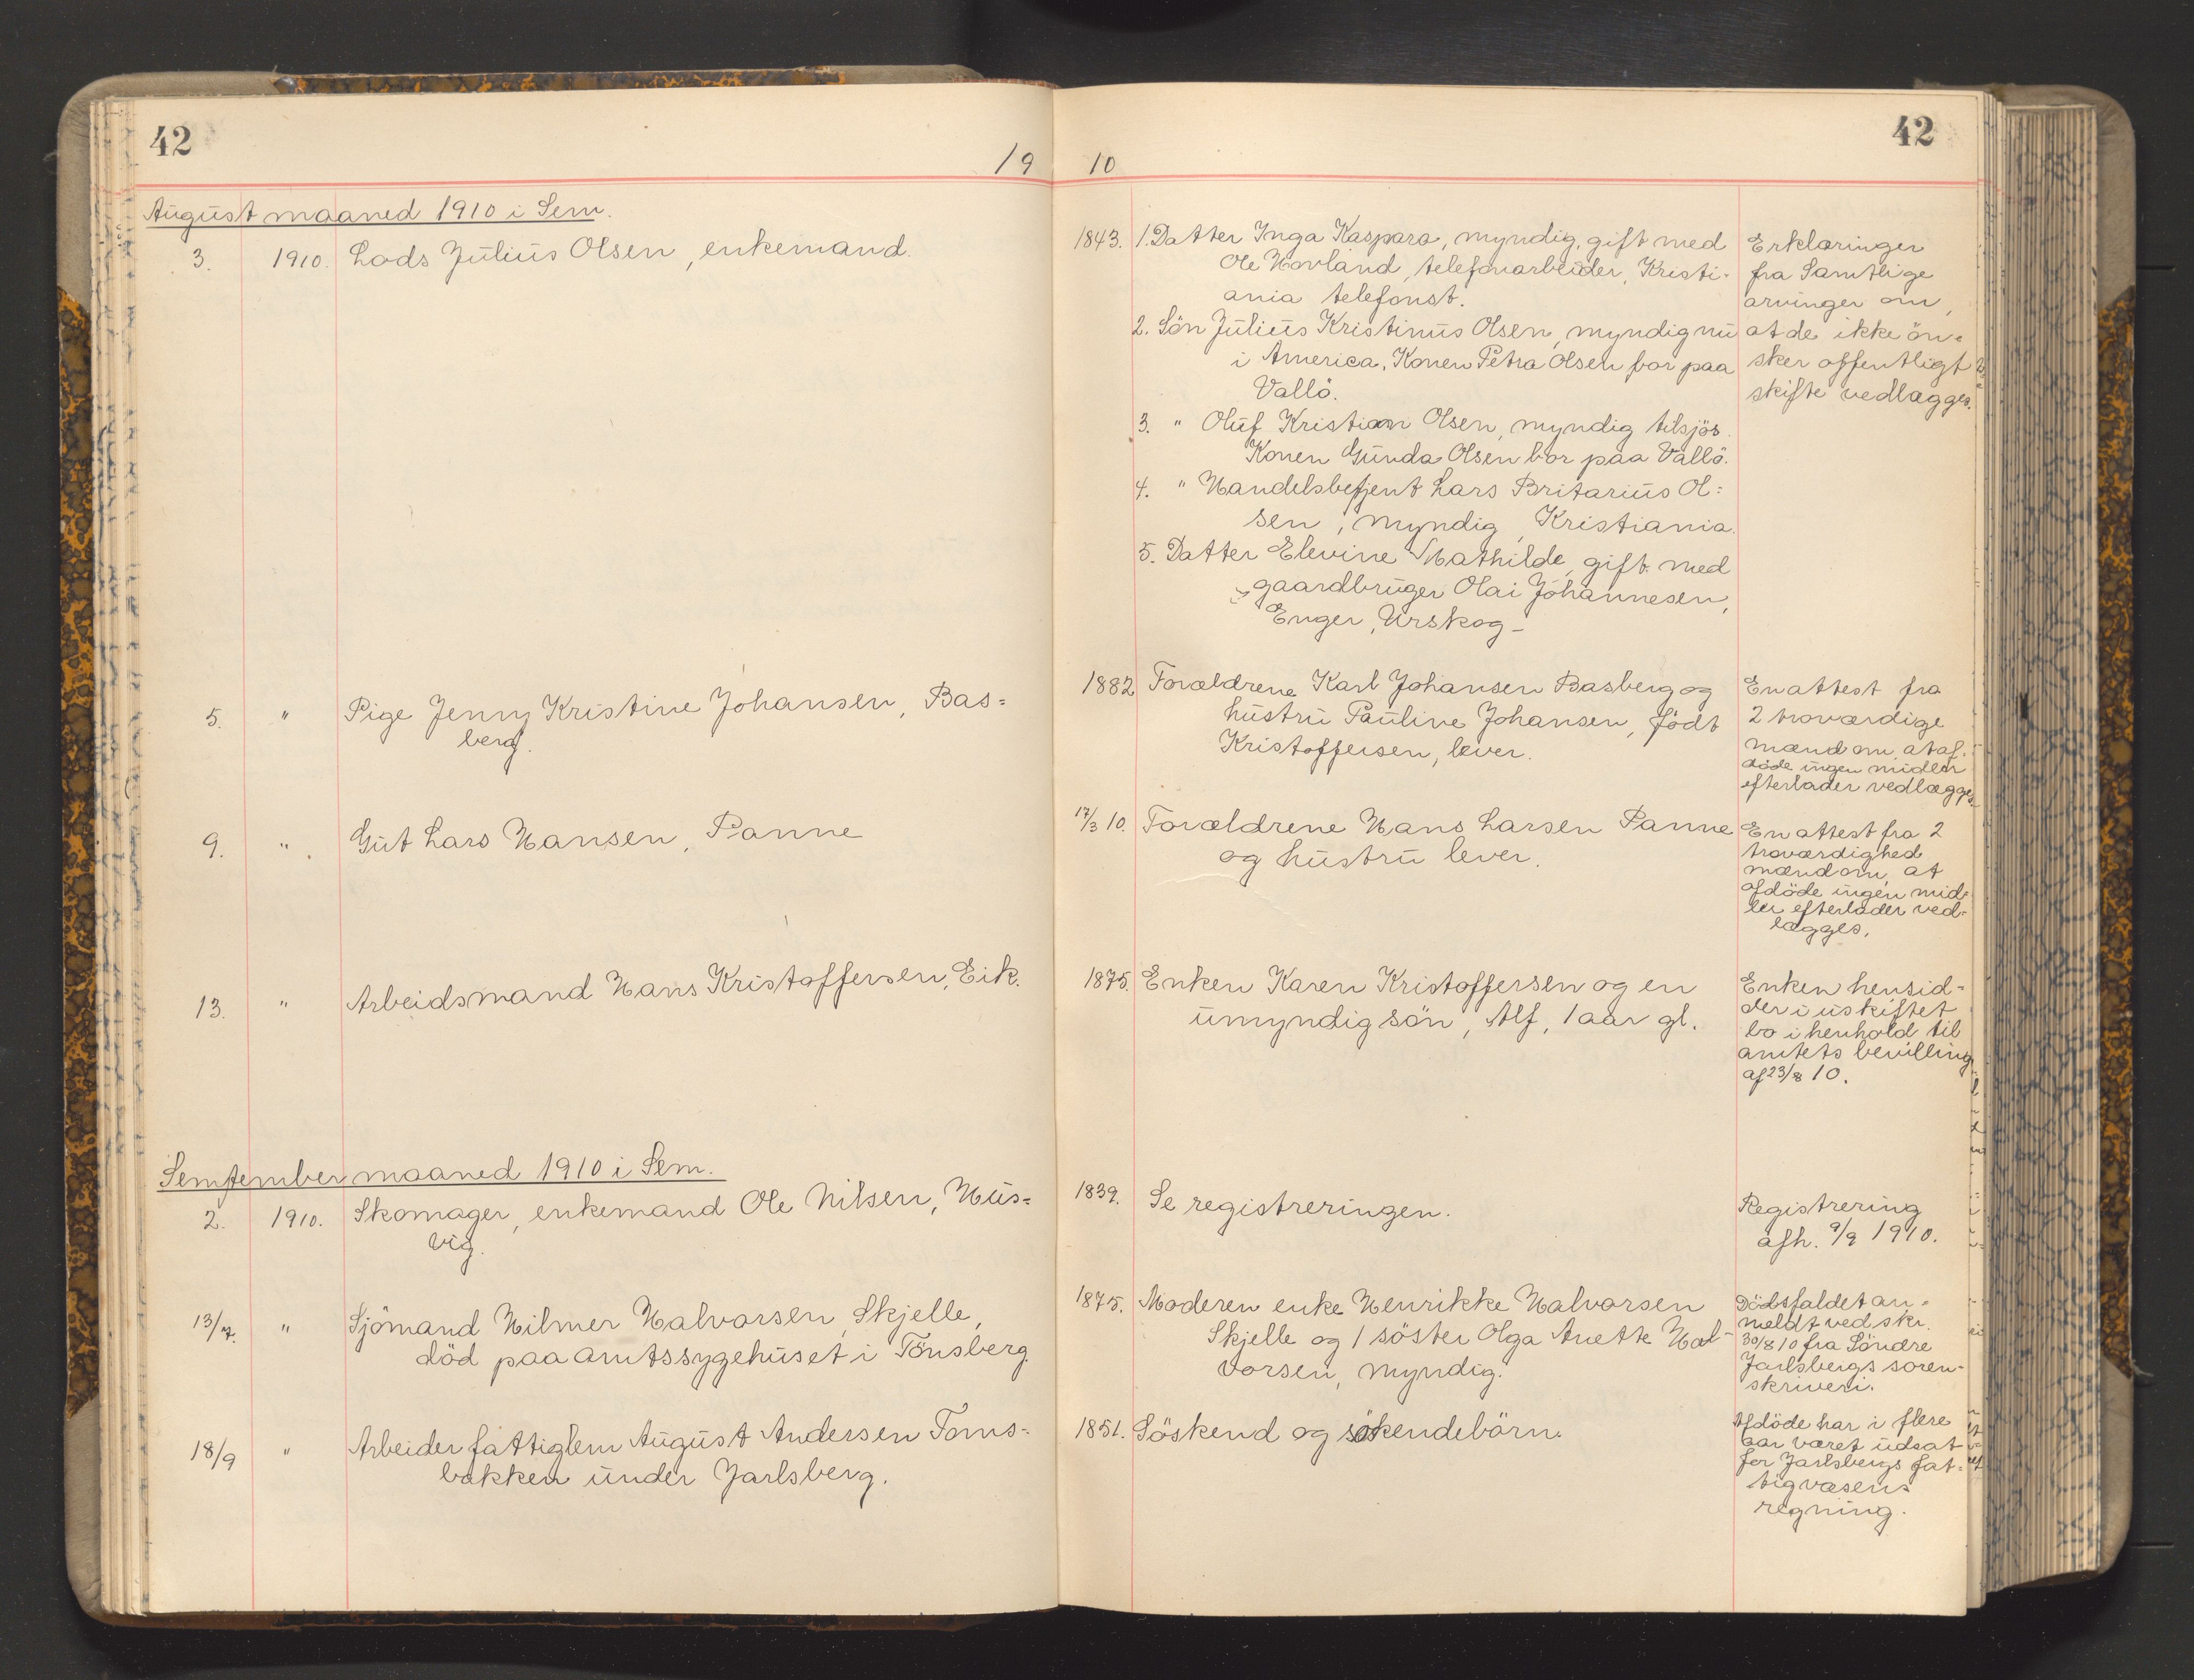 42
42
19 10
August maaned 1910 i Sem.
3. 1910. Lods Julius Olsen, enkemand.
1843. 1. Datter Inga Kaspara, myndig, gift med
Ole Hovland, telefonarbeider, Kristi-
ania telefonst.
2. Sön Julius Kristinus Olsen, myndig nu
i America, Konen Petra Olsen bor paa
Vallö.
3. " Oluf Kristian Olsen, myndig tilsjös.
Konen Gunda Olsen bor paa Vallö.
4. " Handelsbetjent Lars Britarius Ol=
sen, myndig, Kristiania.
5. Datter Elevine Mathilde, gift med
gaardbruger Olai Johannesen,
Enger, Urskog -
Erklæringer
fra Samtlige
arvinger om,
at de ikke ön=
sker offentligt
skifte vedlægges.
5. " Pige Jenny Kristine Johansen, Bas=
berg.
1882 Forældrene Karl Johansen Basberg og
hustru Pauline Johansen, födt
Kristoffersen, lever.
En attest fra
2 troværdige
mænd om at af-
döde ingen midler
efterlader vedlægges.
9. " . Gut Lars Hansen, Panne
17/3 10. Forældrene Hans Larsen Panne
og hustru lever.
En attest fra 2
troværdighed
mænd om, at
afdöde ingen mid=
ler efterlader ved-
lægges.
13. " Arbeidsmand Hans Kristoffersen, Eik.
1875. Enken Karen Kristoffersen og en
umyndig sön, Alf, 1 aar gl.
Enken hensid-
der i uskiftet
bo i henhold til
amtets bevilling
af 23/8 10.
Semtember maaned 1910 i Sem.
2. 1910. Skomager, enkemand Ole Nilsen, Hus=
vig.
1839. Se registreringen.
Registrering
afh. 9/9 1910.
13/7. " Sjömand Hilmer Halvorsen, Skjelle,
död paa amtssygehuset i Tönsberg.
1875. Moderen enke Henrikke Halvorsen
Skjelle og 1 söster Olga Anette Hal-
vorsen, myndig.
Dödsfaldet an-
meldt ved skr.
30/8 10 fra Söndre
Jarlsbergs soren-
skriveri.
18/9 " Arbeider fattiglem August Andersen Toms=
bakken under Jarlsberg.
1851. Söskend og sökendebörn.
Afdöde har i flere
aar været udsat
for Jarlsbergs fat=
tigvæsens
regning.